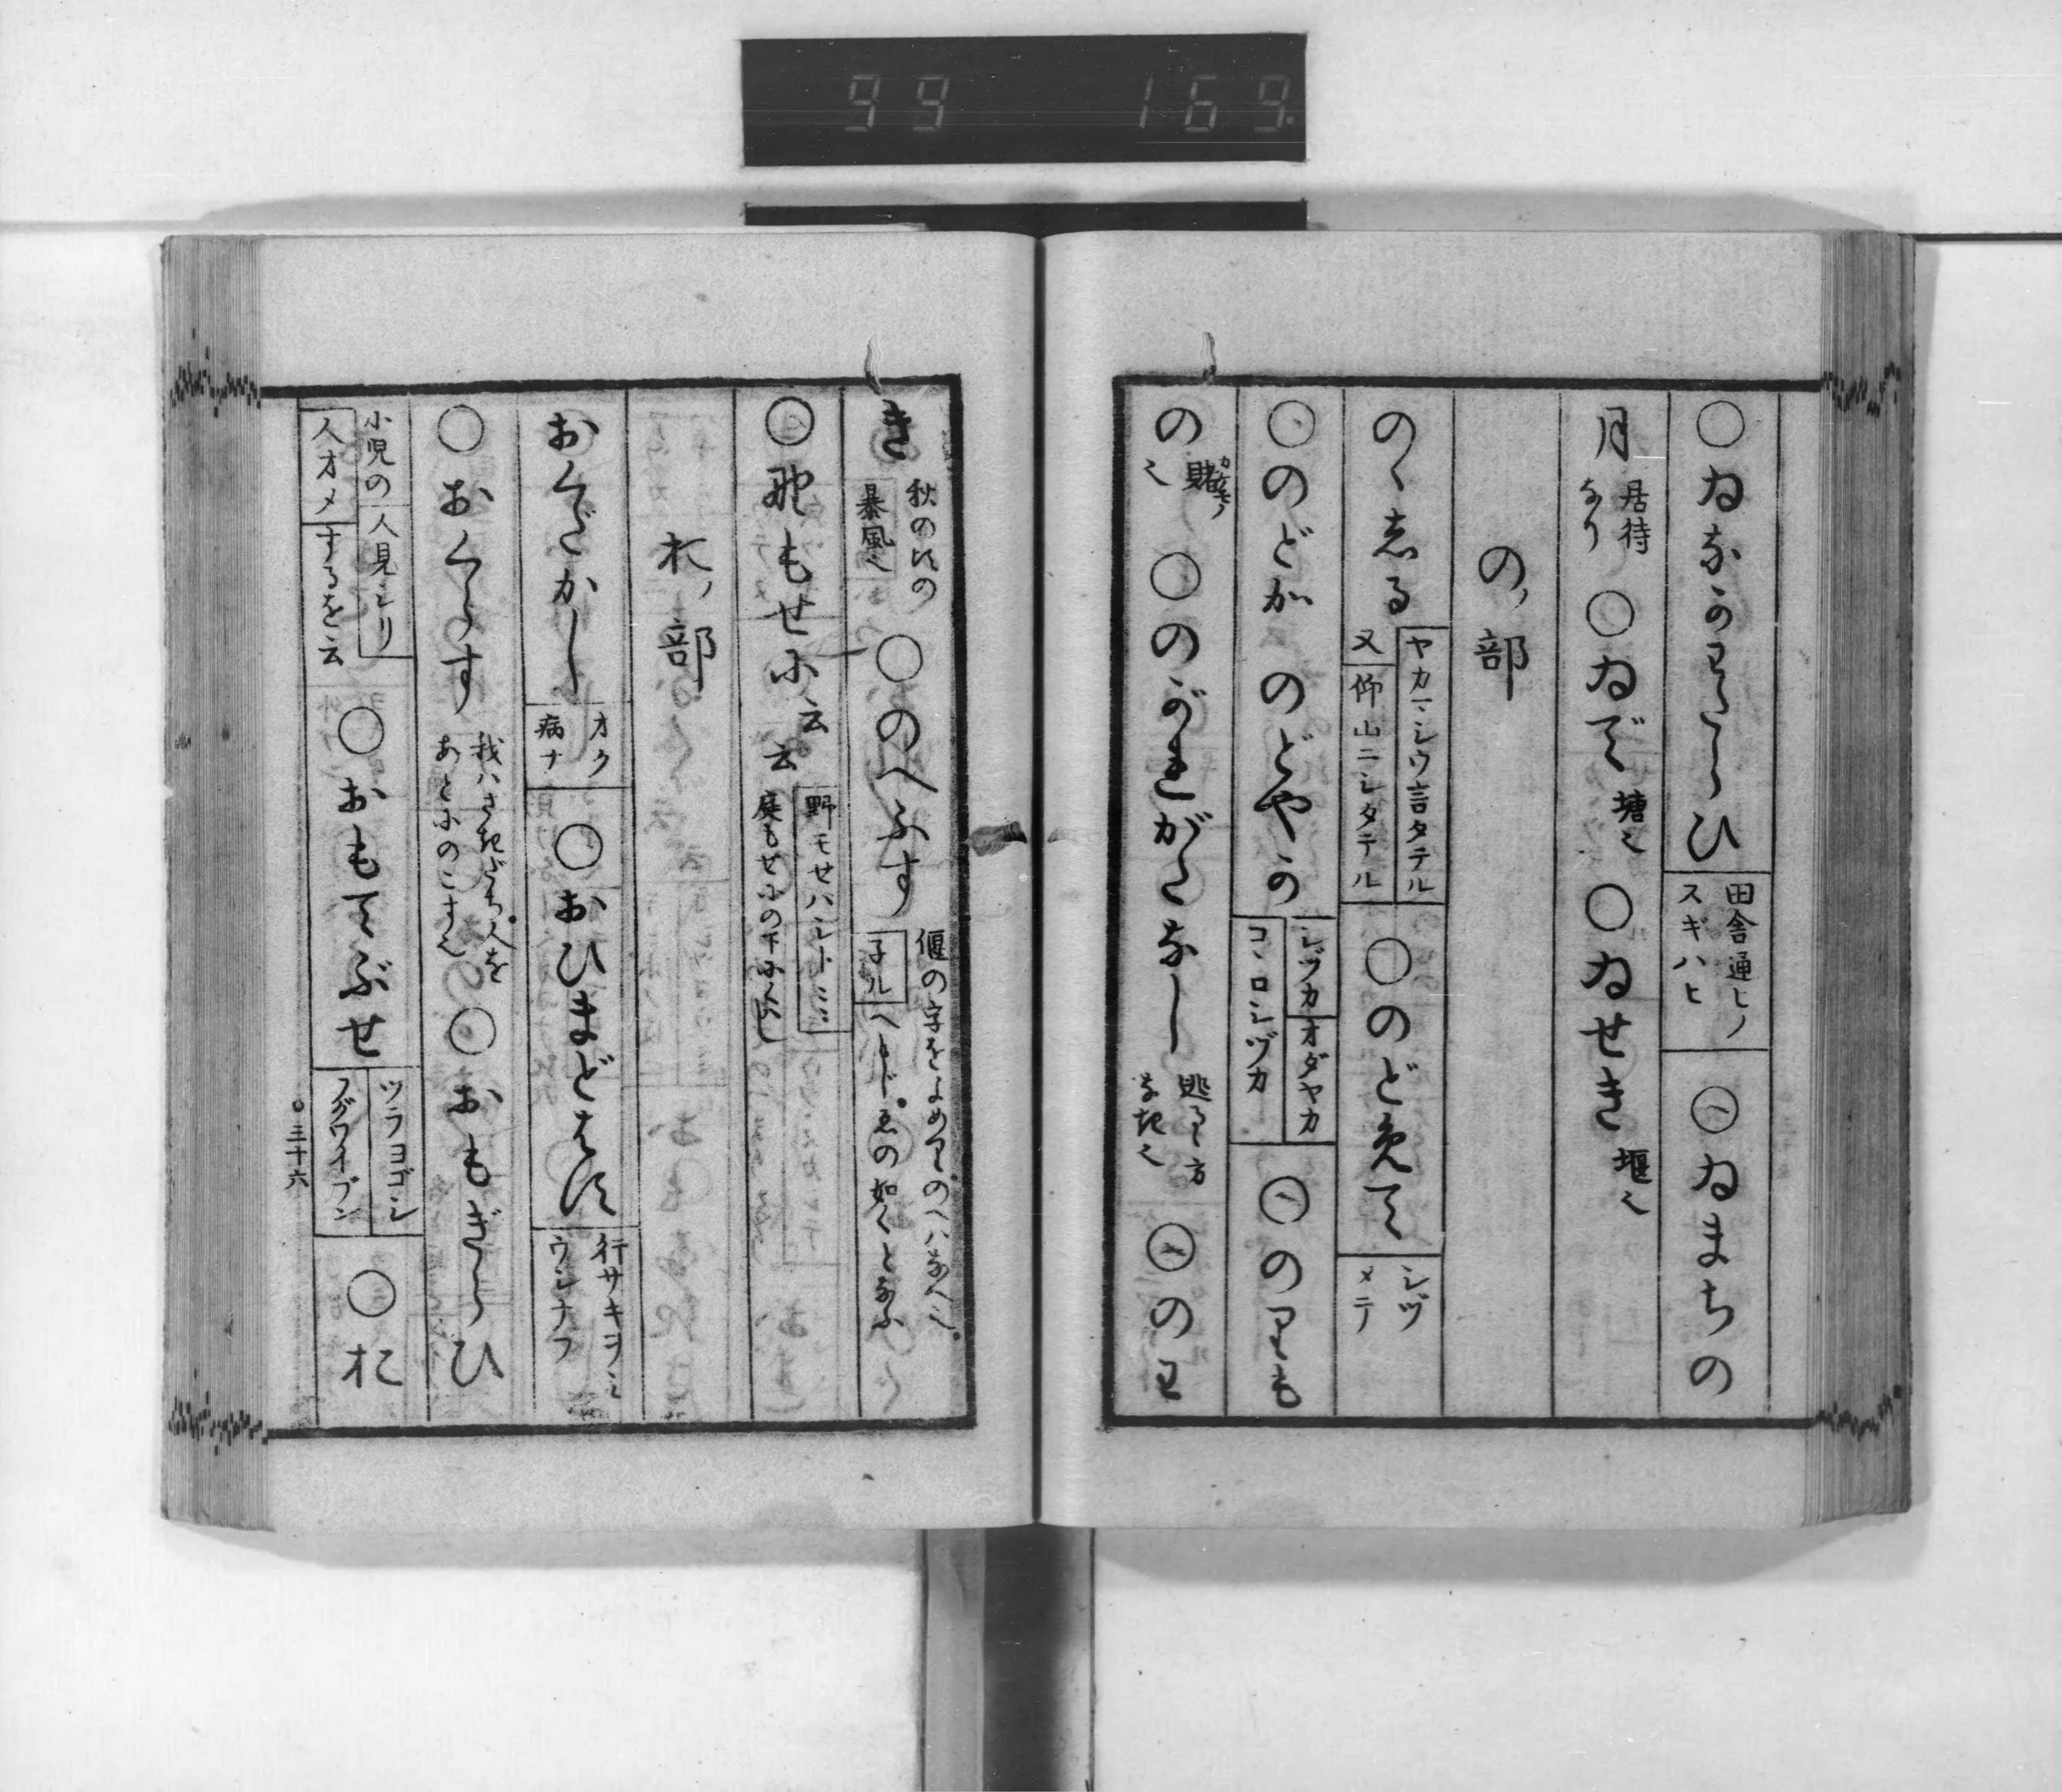 99 169
○ゐなかわたらひ 田舎通ヒノ スギハヒ ○ゐまちの
月 居待なり ○ゐで 塘也 ○ゐせき 堰也
の部
のゝしる ヤカマシウ言タテル 又 仰山ニシタテル ○のどめて シヅメテ
○のどか のどやか シヅカ オダヤカ コヽロシヅカ ○のりも
の 賭也 ○のがれがたなし 逃るゝ方なき也 ○のわ
き 秋の比の 暴風也 ○のへふす 偃の字をよめり のへハなへ也 子ル へもじゑの如くとなふ
○野もせに云云 野モセハシトミニ 庭もせにの下に
お部
おくだかし オク病ナ ○おひまどはす 行サキヲミウシナフ
○おくらす 我ハさきだち人をあとにのこす也 ○おもぎらひ
小児の 人見シリ 人オメ するを云 ○おもてぶせ ツラヨゴシ フグワイブン ○お
三十六